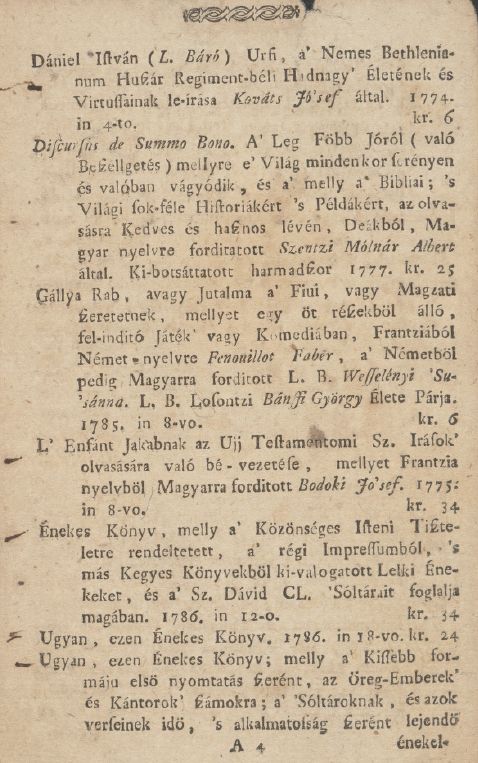 Dániel Iſtván (L. Báró) Urſi, a' Nemes Bethlenia-
num Huſzár Regiment-béli Hadnagy' Életének és
Virtuſſainak le-írása Kováts Jó'sef által. 1774.
in 4-to. kr. 6
Diſcurſus de Summo Bono. A' Leg Főbb Jóról (való
Beſzellgetés) mellyre e' Világ mindenkor ſerényen
és valóban vágyódik, és a' melly a' Bibliai; 's
Világi ſok-féle Hiſtoriákért 's Példákért, az olva-
sásra Kedves és haſznos lévén, Deákból, Ma-
gyar nyelvre forditatott Szentzi Mólnár Albert
által. Ki-botsáttatott harmadſzor 1777. kr. 25
Gállya Rab, avagy Jutalma a' Fiui, vagy Magzati
ſzeretetnek, mellyet egy öt réſzekböl álló,
fel-inditó Játék' vagy Komediában, Frantziából
Német-nyelvre Fenouillot Fabér, a' Németböl
pedig Magyarra forditott L. B. Weſſelényi 'Su-
'sánna. L. B. Loſontzi Bánffi György Élete Párja.
1785. in 8-vo. kr. 6
L' Enfánt Jakabnak az Ujj Teſtamentomi Sz. Irások'
olvasására való bé-vezetéſe, mellyet Frantzia
nyelvböl Magyarra forditott Bodoki Jó'sef. 1775:
in 8-vo. kr. 34
Énekes Könyv, melly a' Közönséges Iſteni Tiſzte-
letre rendeltetett, a' régi Impreſſumból, 's
más Kegyes Könyvekböl ki-válogatott Lelki Éne-
keket, és a' Sz. Dávid CL. 'Sóltárait foglalja
magában. 1786. in 12-o. kr. 34
Ugyan, ezen Énekes Könyv. 1786. in 18-vo. kr. 24
Ugyan, ezen Énekes Könyv; melly a' Kiſſebb for-
máju elsö nyomtatás ſzerént, az Öreg-Emberek'
és Kántorok' ſzámokra; a' 'Sóltároknak, és azok
verſeinek idö, 's alkalmatoſság ſzerént lejendö
A 4 énekel-